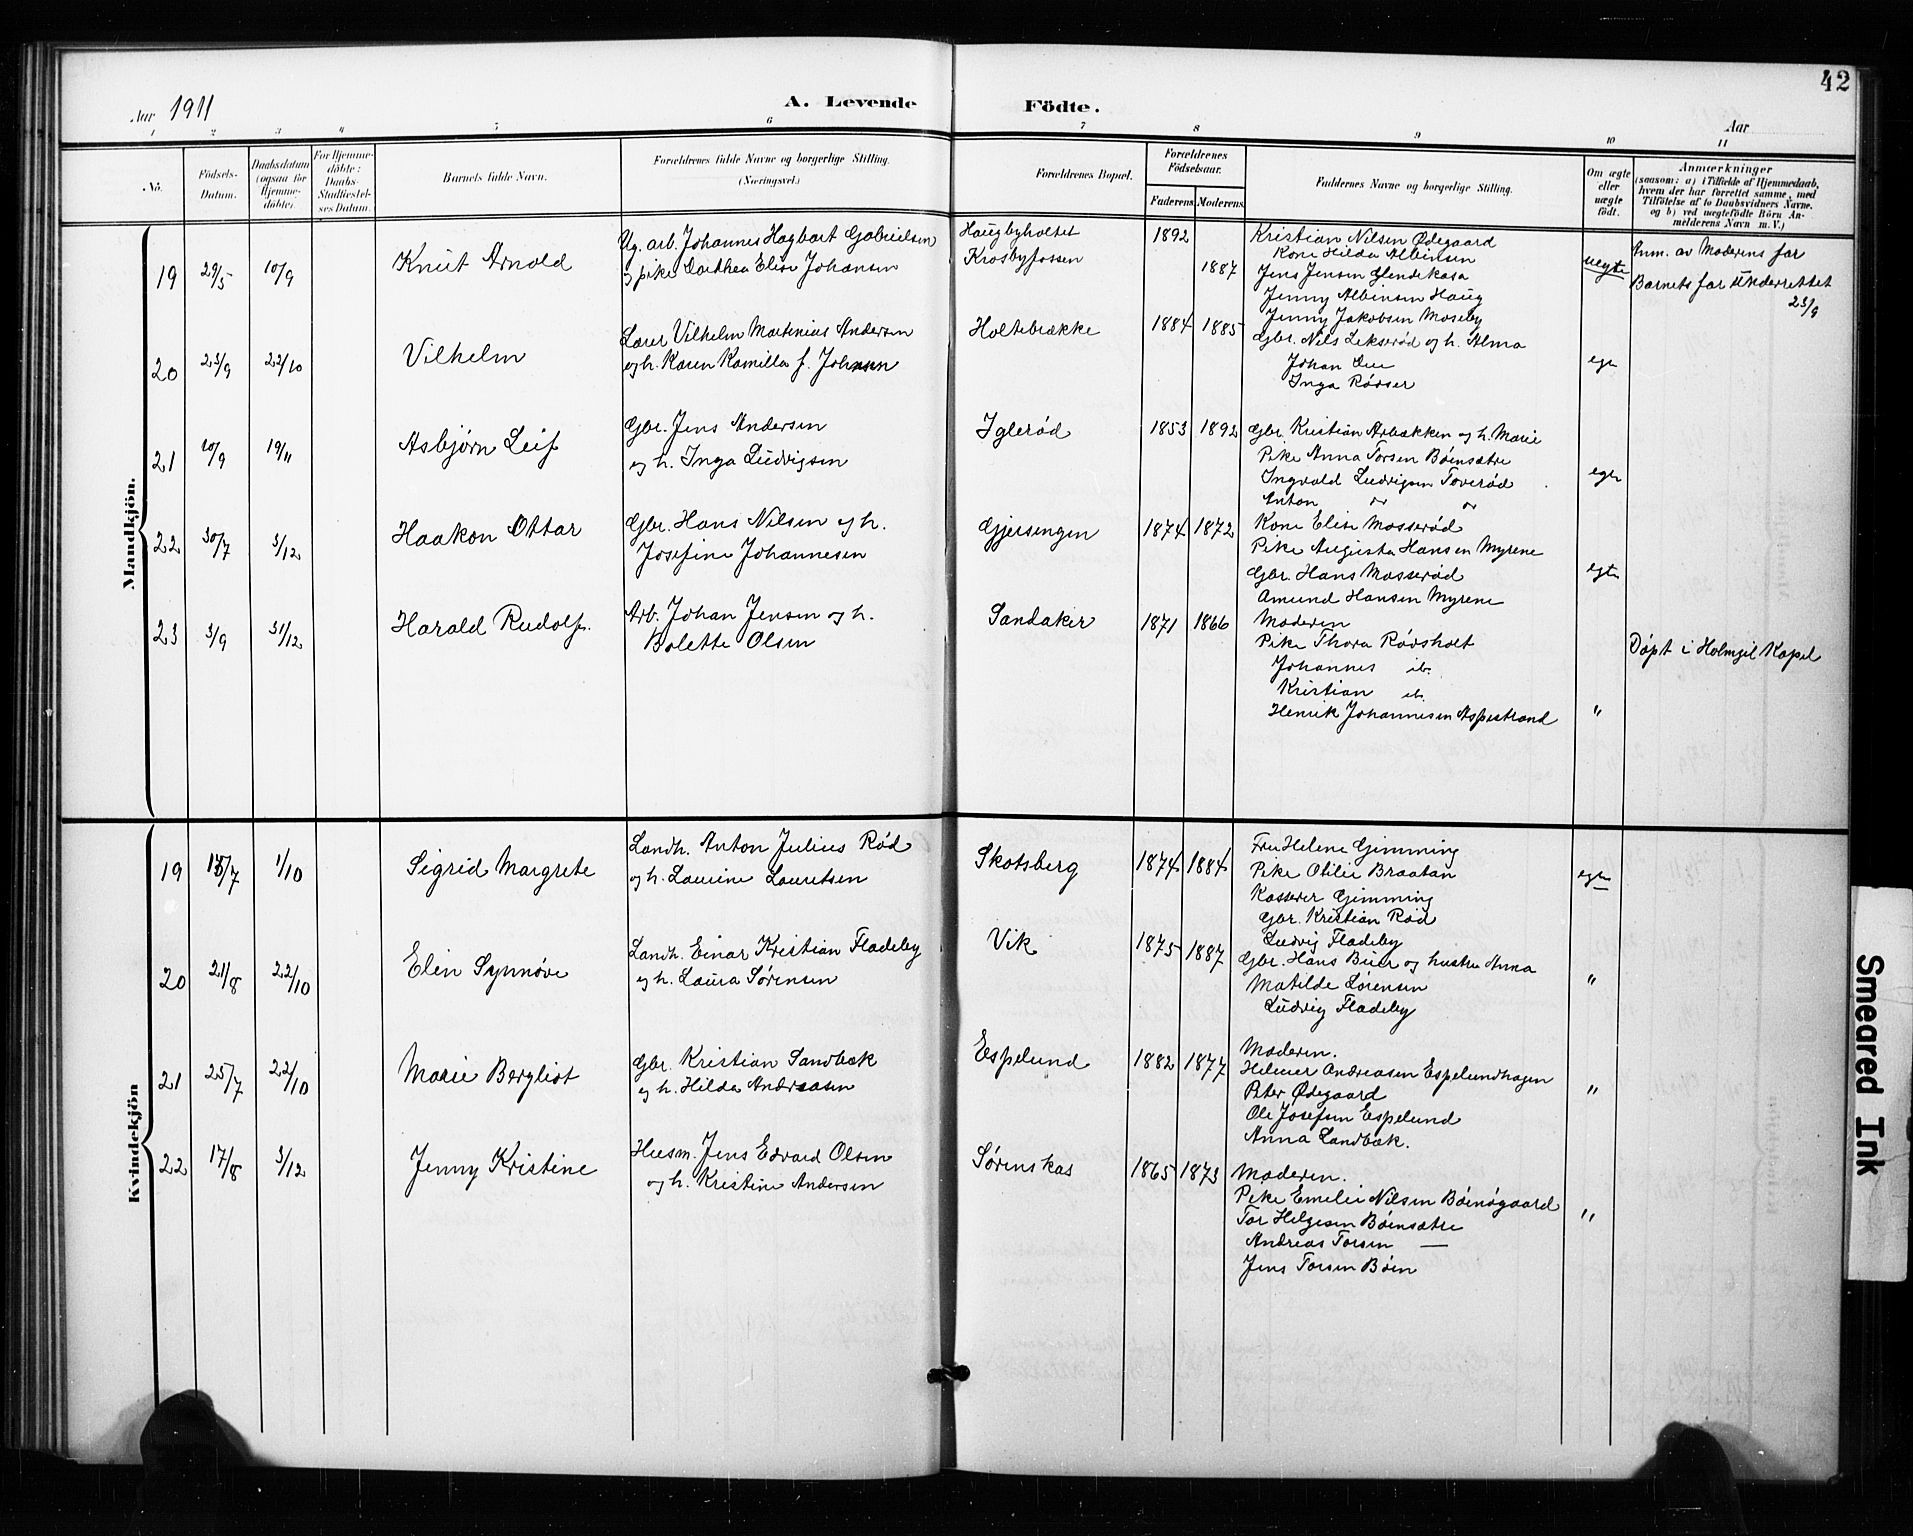 42
Aar 1911
A. Levende Födte.
Aar
1 2 3 4 5 6 7 8 9 10 11
No.
Födsels-Datum.
Daabsdatum (ogsaa for Hjemme-döbte).
For Hjemme-döbte: Daabs-Stadfæstel-ses Datum.
Barnets fulde Navn.
Forældrenes fulde Navne og borgerlige Stilling.
(Næringsvei.)
Forældrenes Bopæl.
Forældrenes Födselsaar.
Faderens Moderens
Faddernes Navne og borgerlige Stilling.
Om ægte eller uægte födt.
Anmærkninger
(saasom: a) i Tilfælde af Hjemmedaab,
hvem der har forrettet samme, med
Tilföielse af to Daabsvidners Navne.
og b) ved uægtefödte Börn An-
melderens Navn m. V.)
Mandkjön.
19 29/5 10/9 Knut Arnold
Ug. arb. Johannes Hagbart Gabrielsen
og pike Dorthea Elise Johansen
Haugbyholtet
Krosbyfossen
1892
1887
Kristian Nilsen Ødegaard
Kone Hilda Albinsen
Jens Jensen Glendekasa
Jenny Albinsen Haug
Jenny Jakobsen Moseby
uegte
Anm. av Moderens far
Barnets far underrettet
23/9
20 23/9 22/10 Vilhelm
Lærer Vilhelm Martinius Andersen
og h. Karen Kamilla f. Johnsen
Holtebække 1884 1885
Gbr. Nils Lekserød og h. Alma
Johan Lie
Inga Rødser
egte
21 10/9 19/11 Asbjørn Leif
Gbr. Jens Andersen
og h. Inga Ludvigsen
Iglerød 1853 1892
Gbr. Kristian Arbækken og h. Marie
Pike Anna Torsen Bøensætre
Ingvald Ludvigsen Toverød
Anton " "
egte
22 30/7 3/12 Haakon Ottar
Gbr. Hans Nilsen og h.
Josefine Johannesen
Gjersengen 1874 1872
Kone Elise Mosserød
Pike Augusta Hansen Myrene
Gbr. Hans Mosserød
Amund Hansen Myrene
egte
23 3/9 31/12 Harald Rudolf.
Arb. Johan Jensen og h.
Bolette Olsen
Sandaker 1871 1866
Moderen
Pike Thora Rødsholt
Johannes ib.
Kristian ib.
Henrik Johannesen Aspestrand
"
Døpt i Holmgil Kapel
Kvindekjön
19 15/7 1/10 Sigrid Margrete
Landh. Anton Julius Rød
og h. Laurine Lauritsen
Skotsberg 1874 1884
Fru Helene Gimming
Pike Otilie Braatan
Kasserer Gimming
Gbr. Kristian Rød
Ludvig Fladeby
egte
20 21/8 22/10 Elin Synnøve
Landh. Einar Kristian Fladeby
og h. Laura Sørensen
Vik 1875 1887
Gbr. Hans Buer og hustru Anna
Matilde Sørensen
Ludvig Fladeby
"
21 25/7 22/10 Marie Bergliot
Gbr. Kristian Sandbæk
og h. Hilda Andreasen
Espelund 1882 1877
Moderen.
Helmer Andreasen Espelundhagen
Peter Ødegaard
Ole Josefsen Espelund
Anna Sandbæk.
"
22 17/8 3/12 Jenny Kristine
Husm. Jens Edvard Olsen
og h. Kristine Andersen
Sørenskas 1865 1873
Moderen.
Pike Emelie Nilsen Bøenøgaard
Tor Helgesen Bøensætre
Andreas Torsen —
Jens Torsen Bøen
"
Smeared Ink